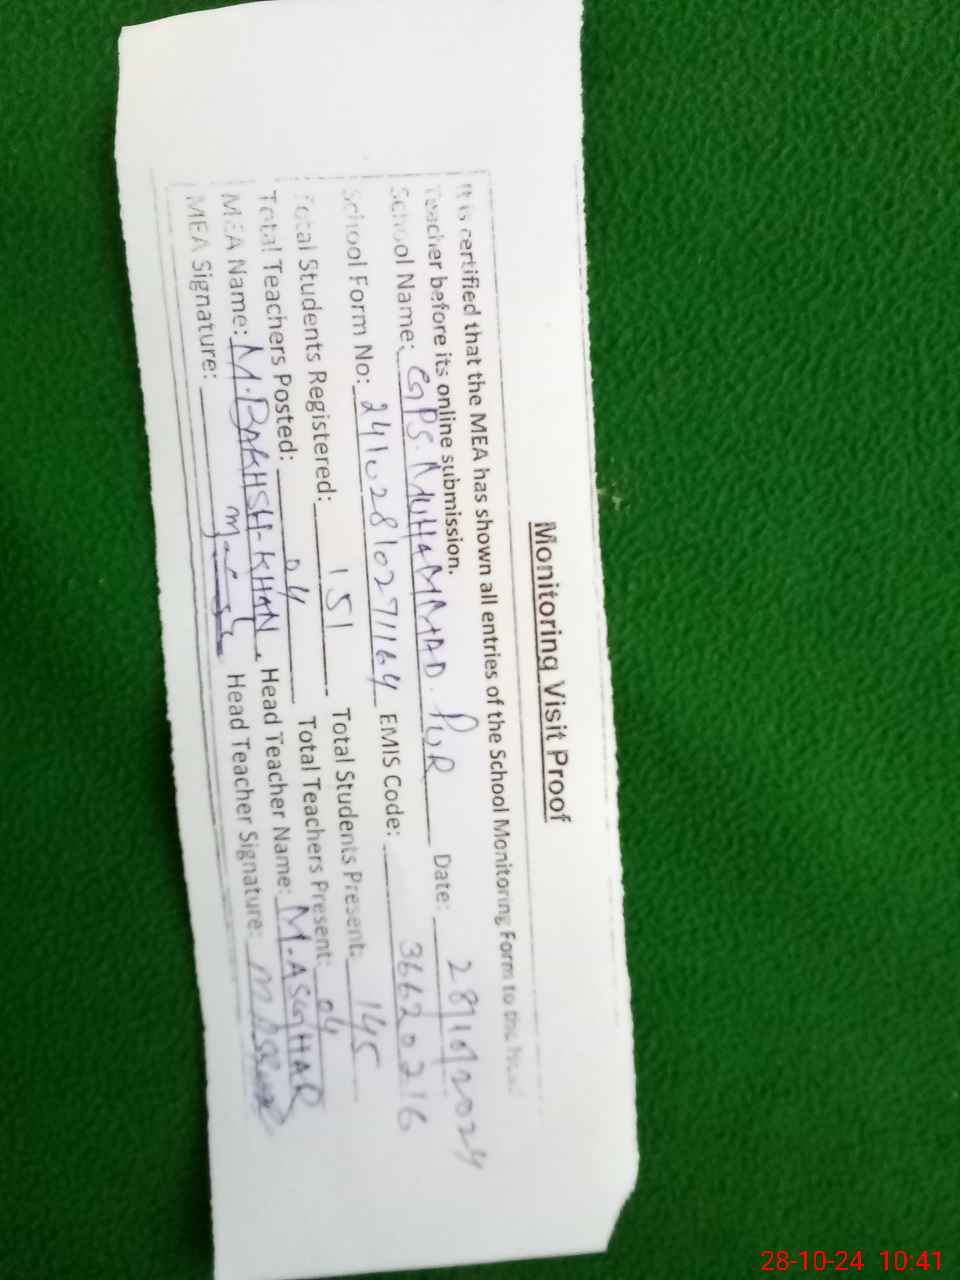 Monitoring Visit Proof
It is certified that the MEA has shown all entries of the School Monitoring Form to the Head
Teacher before its online submission.
School Name: GPS. MUHAMMAD. PUR Date: 28/10/2024
School Form No: 24102810271164 EMIS Code: 36620216
Total Students Registered: 151 Total Students Present: 145
Total Teachers Posted: 04 Total Teachers Present: 04
MEA Name: M.BAKHSH-KHAN. Head Teacher Name: M.ASGHAR
MEA Signature: Head Teacher Signature:
28-10-24 10:41